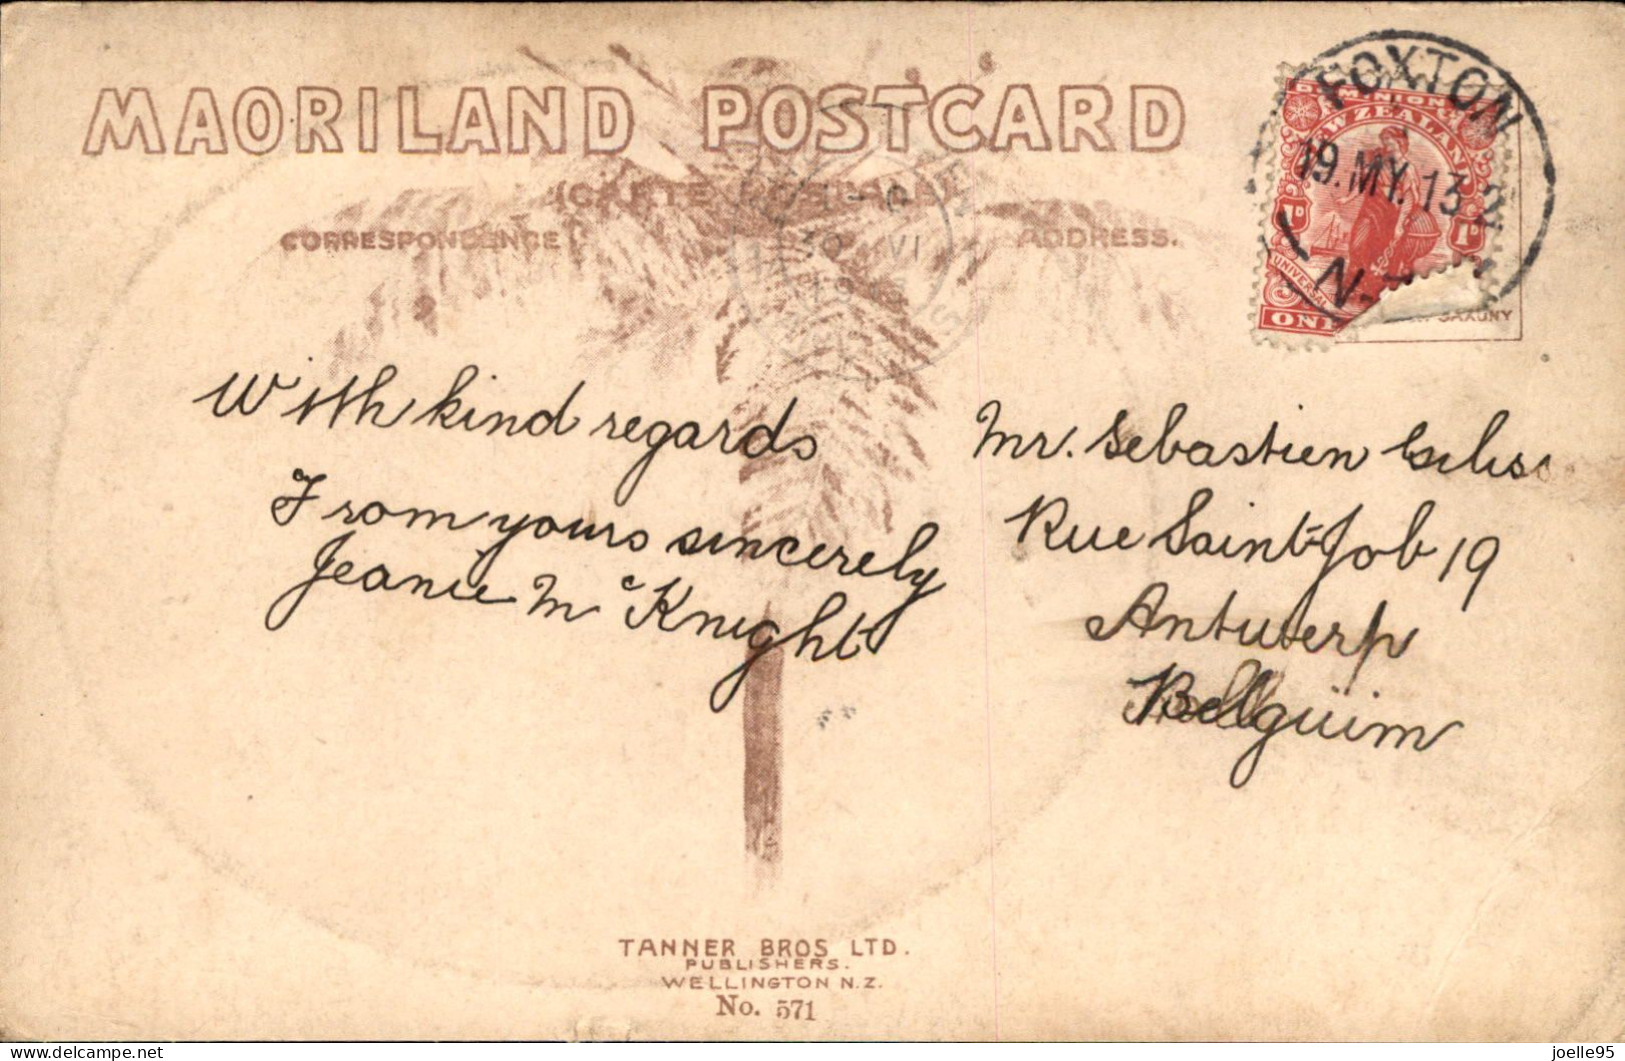 MAORILAND POSTCARD
(CARTE POSTALE)
CORRESPONDENCE
ADDRESS.
FOXTON
19.MY.13.2
N.
DOMINION OF
NEW ZEALAND
1D
1D
UNIVERSAL
ONE
SAXONY
With kind regards
From yours sincerely
Jeanie McKnight
Mr. Sebastien
Rue Saint-Job 19
Antwerp
Belguim
TANNER BROS LTD.
PUBLISHERS.
WELLINGTON N.Z.
No. 571
joelle95